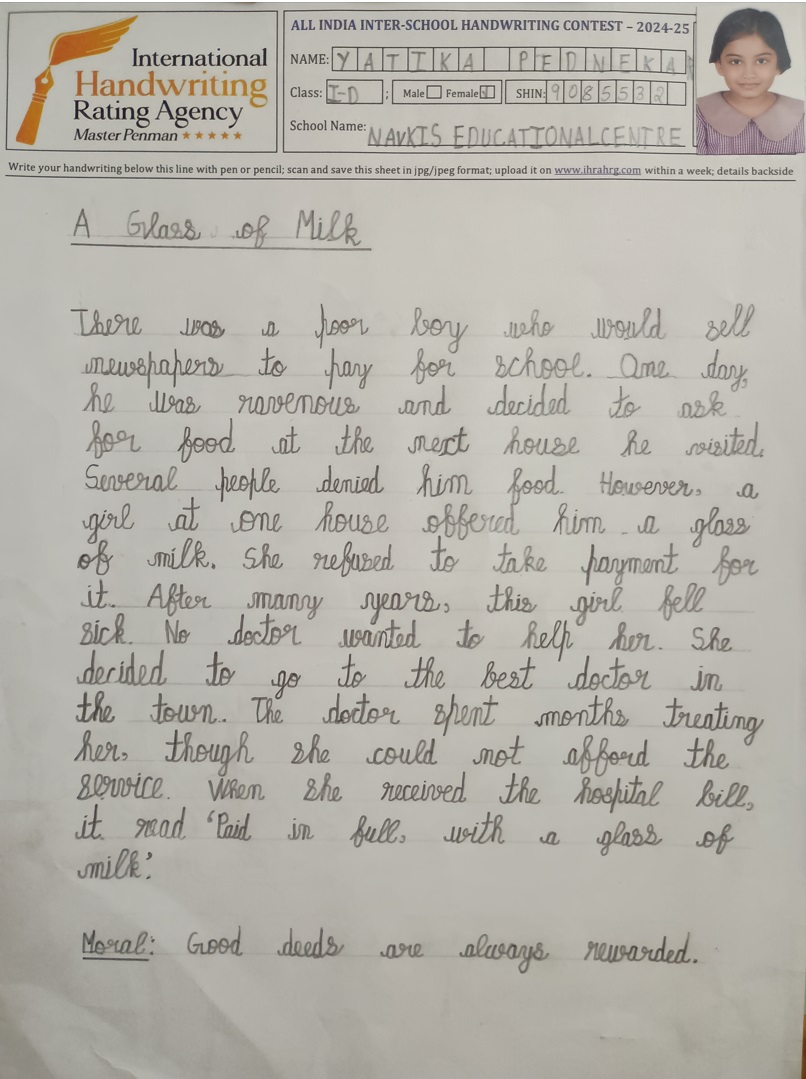 International
Handwriting
Rating Agency
Master Penman ★★★★★
ALL INDIA INTER-SCHOOL HANDWRITING CONTEST – 2024-25
NAME: YATIKA PEDNEKAR
Class: I-D ; Male Female SHIN: 9085532
School Name: NAVKIS EDUCATIONAL CENTRE
Write your handwriting below this line with pen or pencil; scan and save this sheet in jpg/jpeg format; upload it on www.ihrahrg.com within a week; details backside
A Glass of Milk
There was a poor boy who would sell
newspapers to pay for school. One day,
he was ravenous and decided to ask
for food at the next house he visited.
Several people denied him food. However, a
girl at one house offered him a glass
of milk. She refused to take payment for
it. After many years, this girl fell
sick. No doctor wanted to help her. She
decided to go to the best doctor in
the town. The doctor spent months treating
her, though she could not afford the
service. When she received the hospital bill,
it read 'Paid in full, with a glass of
milk'.
Moral: Good deeds are always rewarded.